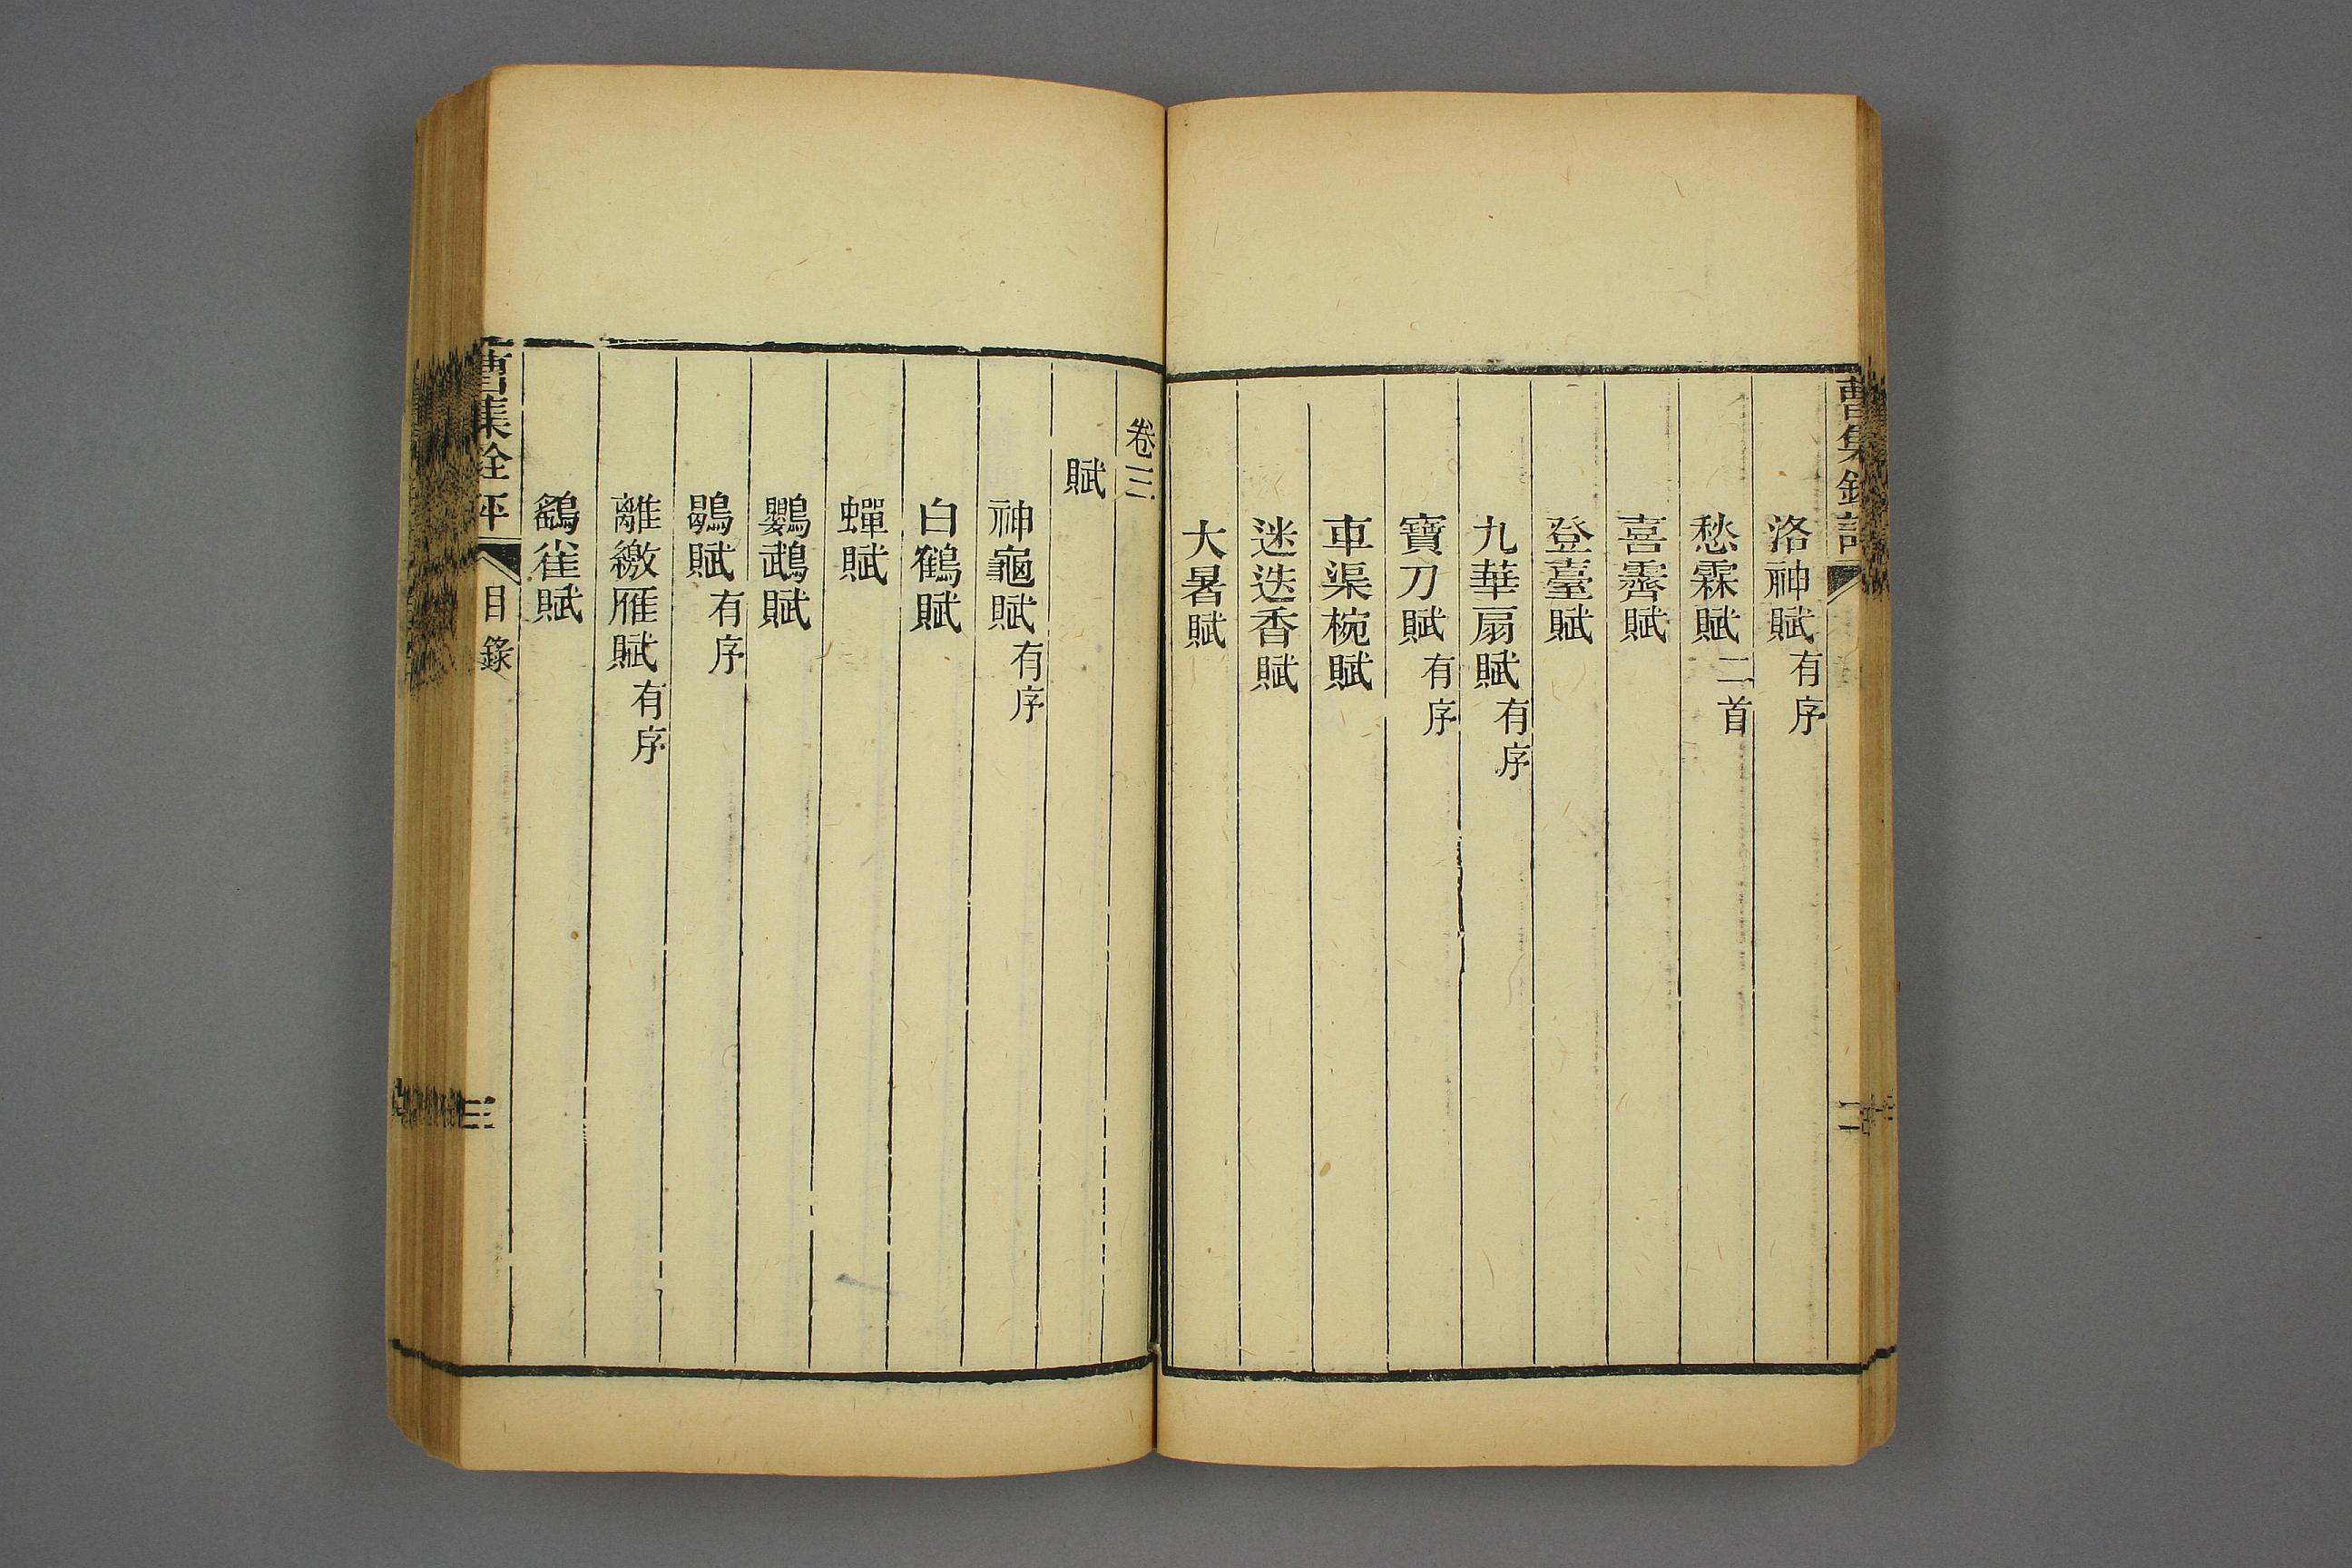 洛神賦有序
愁霖賦二首
喜霽賦
登臺賦
九華扇賦有序
寶刀賦有序
車渠椀賦
迷迭香賦
大暑賦
卷三
賦
神龜賦有序
白鶴賦
蟬賦
鸚鵡賦
鶡賦有序
離繳雁賦有序
鷂雀賦
曹集銓評
目錄
三